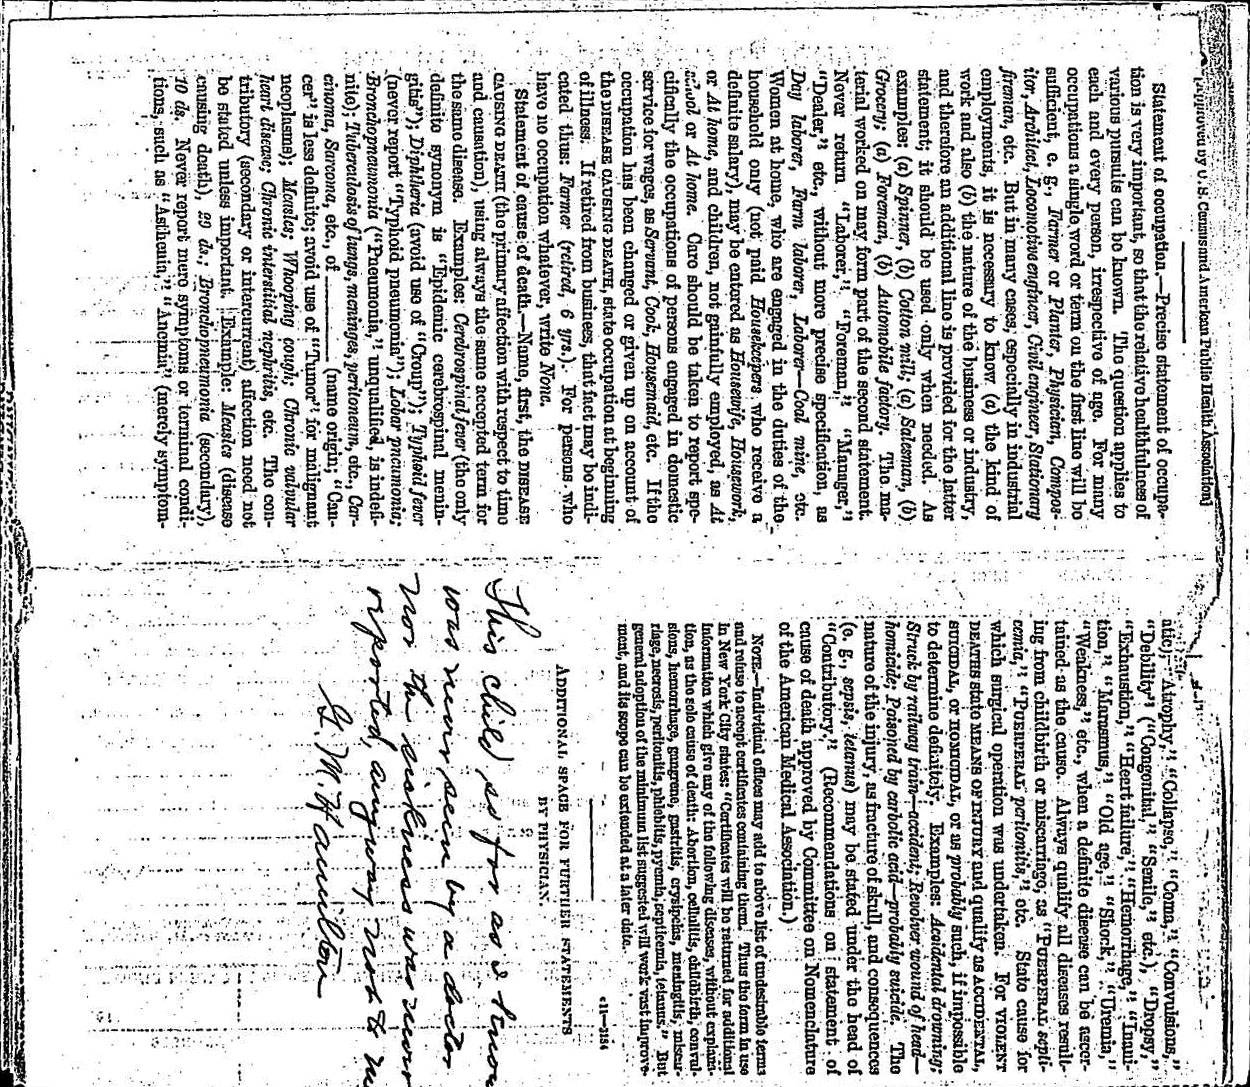 [Approved by U.S. Census and American Public Health Association]
Statement of occupation.—Precise statement of occupa-
tion is very important, so that the relative healthfulness of
various pursuits can be known. The question applies to
each and every person, irrespective of age. For many
occupations a single word or term on the first line will be
sufficient, e. g., Farmer or Planter, Physician, Compos-
itor, Architect, Locomotive engineer, Civil engineer, Stationary
fireman, etc. But in many cases, especially in industrial
employments, it is necessary to know (a) the kind of
work and also (b) the nature of the business or industry,
and therefore an additional line is provided for the latter
statement; it should be used only when needed. As
examples: (a) Spinner, (b) Cotton mill; (a) Salesman, (b)
Grocery; (a) Foreman, (b) Automobile factory. The ma-
terial worked on may form part of the second statement.
Never return "Laborer," "Foreman," "Manager,"
"Dealer," etc., without more precise specification, as
Day laborer, Farm laborer, Laborer—Coal mine, etc.
Women at home, who are engaged in the duties of the
household only (not paid Housekeepers who receive a
definite salary), may be entered as Housewife, Housework,
or At home, and children, not gainfully employed, as At
school or At home. Care should be taken to report spe-
cifically the occupations of persons engaged in domestic
service for wages, as Servant, Cook, Housemaid, etc. If the
occupation has been changed or given up on account of
the DISEASE CAUSING DEATH, state occupation at beginning
of illness. If retired from business, that fact may be indi-
cated thus: Farmer (retired, 6 yrs.). For persons who
have no occupation whatever, write None.
Statement of cause of death.—Name, first, the DISEASE
CAUSING DEATH (the primary affection with respect to time
and causation), using always the same accepted term for
the same disease. Examples: Cerebrospinal fever (the only
definite synonym is "Epidemic cerebrospinal menin-
gitis"); Diphtheria (avoid use of "Croup"); Typhoid fever
(never report "Typhoid pneumonia"); Lobar pneumonia;
Bronchopneumonia ("Pneumonia," unqualified, is indefi-
nite); Tuberculosis of lungs, meninges, peritoneum, etc., Car-
cinoma, Sarcoma, etc., of ———— (name origin; "Can-
cer" is less definite; avoid use of "Tumor" for malignant
neoplasms); Measles; Whooping cough; Chronic valvular
heart disease; Chronic interstitial nephritis, etc. The con-
tributory (secondary or intercurrent) affection need not
be stated unless important. Example: Measles (disease
causing death), 29 ds.; Bronchopneumonia (secondary),
10 ds. Never report mere symptoms or terminal condi-
tions, such as "Asthenia," "Anemia" (merely symptom-
atic), "Atrophy," "Collapse," "Coma," "Convulsions,"
"Debility" ("Congenital," "Senile," etc.), "Dropsy,"
"Exhaustion," "Heart failure," "Hemorrhage," "Inani-
tion," "Marasmus," "Old age," "Shock," "Uremia,"
"Weakness," etc., when a definite disease can be ascer-
tained as the cause. Always qualify all diseases result-
ing from childbirth or miscarriage, as "PUERPERAL septi-
cemia," "PUERPERAL peritonitis," etc. State cause for
which surgical operation was undertaken. For VIOLENT
DEATHS state MEANS OF INJURY and qualify as ACCIDENTAL,
SUICIDAL, or HOMICIDAL, or as probably such, if impossible
to determine definitely. Examples: Accidental drowning;
Struck by railway train—accident; Revolver wound of head—
homicide; Poisoned by carbolic acid—probably suicide. The
nature of the injury, as fracture of skull, and consequences
(e. g., sepsis, tetanus) may be stated under the head of
"Contributory." (Recommendations on statement of
cause of death approved by Committee on Nomenclature
of the American Medical Association.)
NOTE.—Individual offices may add to above list of undesirable terms
and refuse to accept certificates containing them. Thus the form in use
in New York City states: "Certificates will be returned for additional
information which give any of the following diseases, without explana-
tion, as the sole cause of death: Abortion, cellulitis, childbirth, convul-
sions, hemorrhage, gangrene, gastritis, erysipelas, meningitis, miscar-
riage, necrosis, peritonitis, phlebitis, pyemia, septicemia, tetanus." But
general adoption of the minimum list suggested will work vast improve-
ment, and its scope can be extended at a later date.
c11—3184
ADDITIONAL SPACE FOR FURTHER STATEMENTS
BY PHYSICIAN.
This child as far as I know
was never seen by a doctor
nor the sickness was never
reported, anyway not to me
G. M. Hamilton